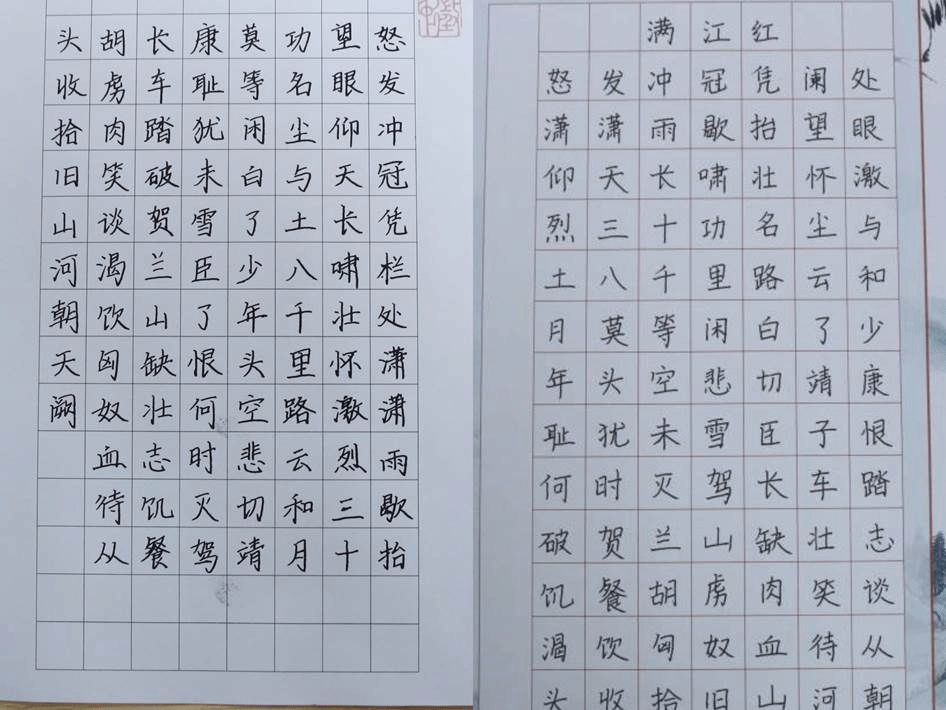 怒发冲冠凭栏处潇潇雨歇抬
望眼仰天长啸壮怀激烈三十
功名尘与土八千里路云和月
莫等闲白了少年头空悲切靖
康耻犹未雪臣了恨何时灭驾
长车踏破贺兰山缺壮志饥餐
胡虏肉笑谈渴饮匈奴血待从
头收拾旧山河朝天阙
满江红
怒发冲冠凭阑处
潇潇雨歇抬望眼
仰天长啸壮怀激
烈三十功名尘与
土八千里路云和
月莫等闲白了少
年头空悲切靖康
耻犹未雪臣子恨
何时灭驾长车踏
破贺兰山缺壮志
饥餐胡虏肉笑谈
渴饮匈奴血待从
头收拾旧山河朝